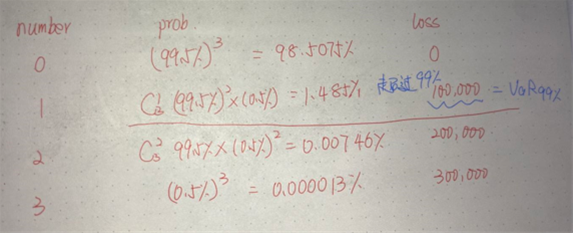 number prob. loss
0 (99.5%)³ = 98.5075% 0
1 C₃¹ (99.5%)²×(0.5%) = 1.485% 超过99% 100,000 = VaR99%
2 C₃² 99.5%×(0.5%)² = 0.00746% 200,000
3 (0.5%)³ = 0.000013% 300,000